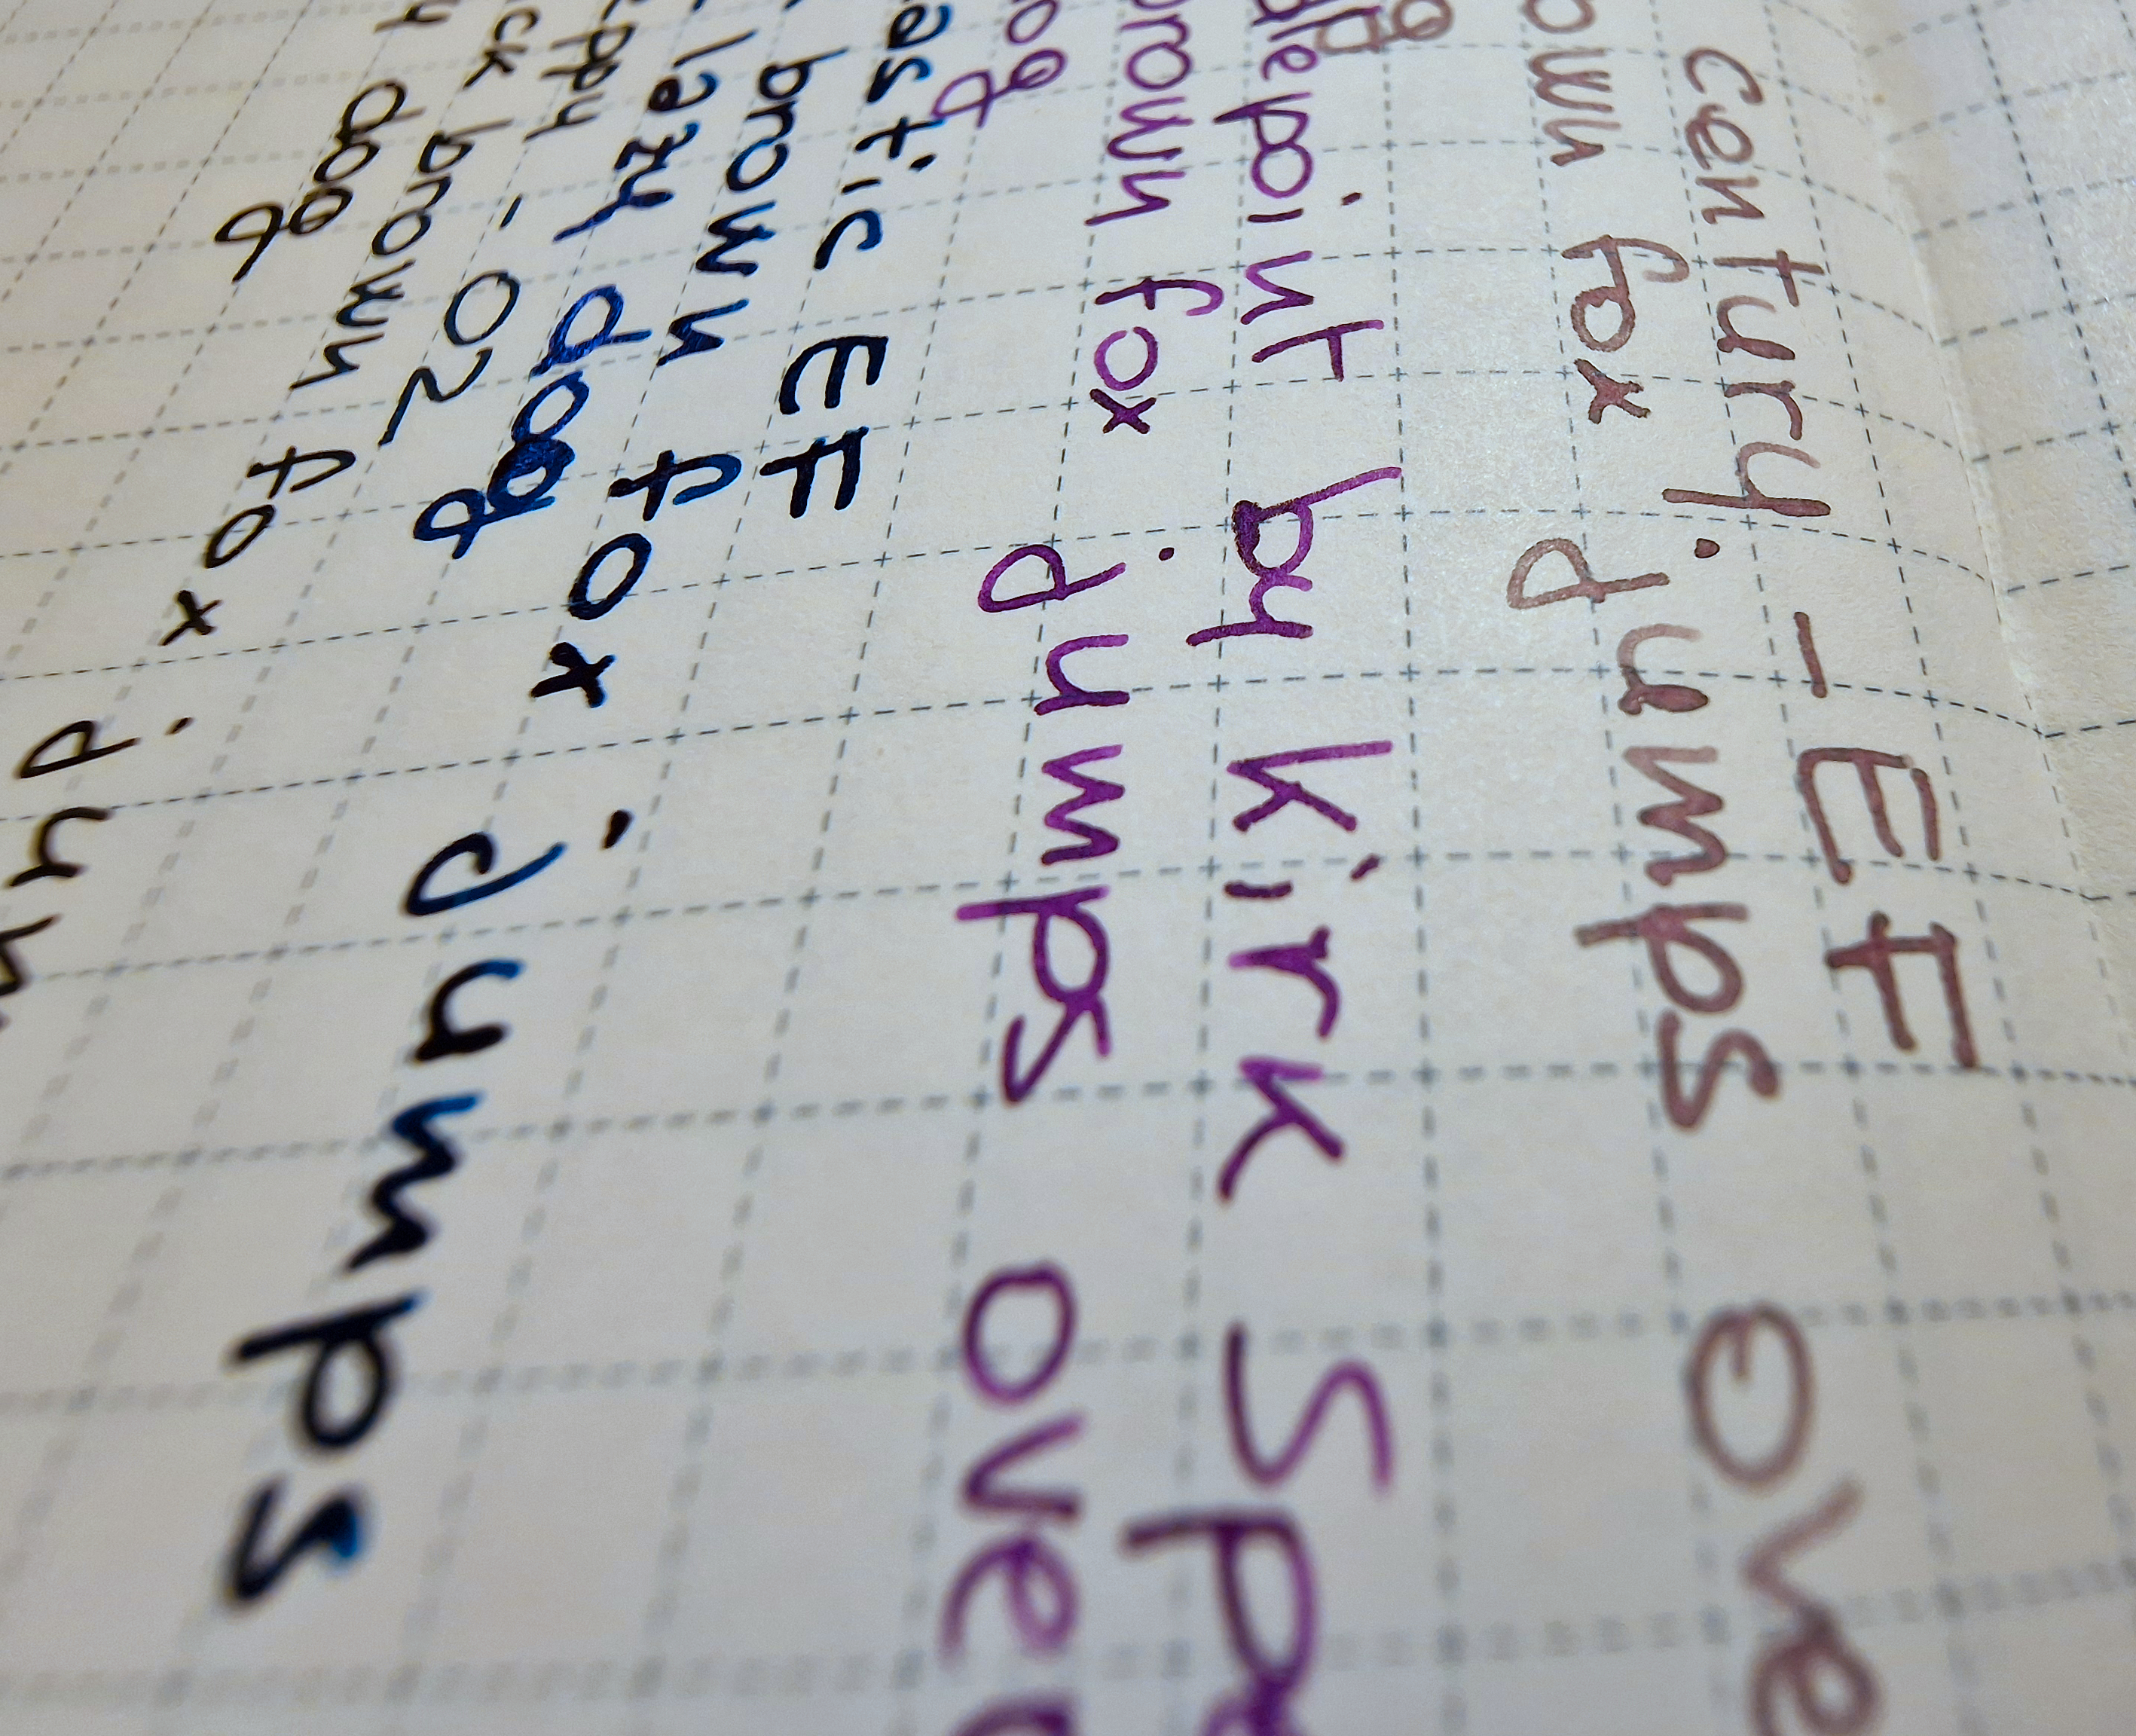 century - EF
own fox jumps ove
lepoint by kirk Spe
rown fox jumps over
og
astic EF
brown fox jumps
lazy dog
ppy - 02
ck brown fox jum
y dog